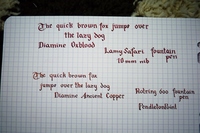 The quick brown fox jumps over
the lazy dog
Diamine Oxblood
Lamy Safari fountain
pen
1.0 mm nib
The quick brown fox
jumps over the lazy dog
Diamine Ancient Copper
Rotring 600 fountain
pen